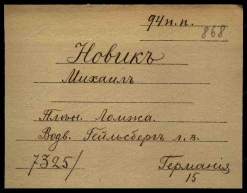 94 п.п.
868
Новикъ
Михаилъ
Плѣн. Ломжа.
Водв. Гейльсбергъ л.в.
7325/ Германія
15